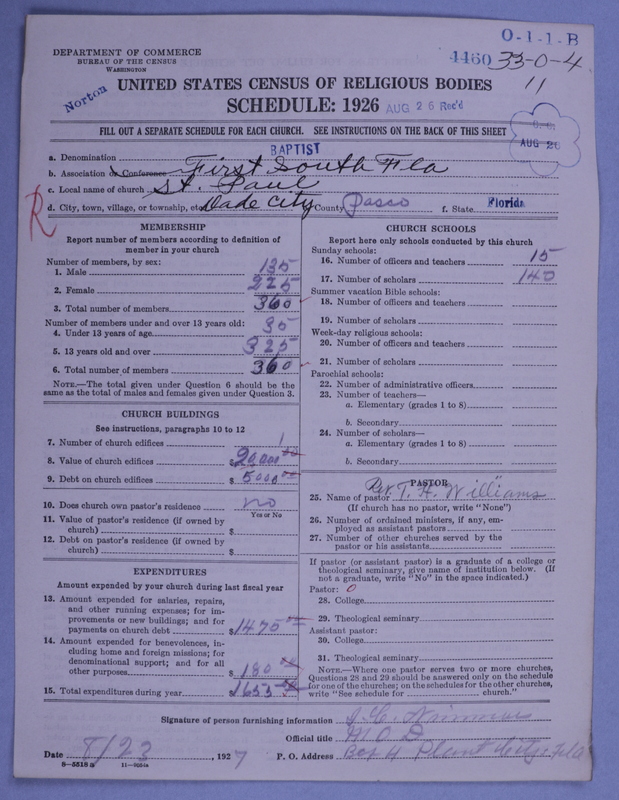 O-1-1-B
DEPARTMENT OF COMMERCE
BUREAU OF THE CENSUS
WASHINGTON
4460 33-0-4
11
Norton
UNITED STATES CENSUS OF RELIGIOUS BODIES
SCHEDULE: 1926
AUG 26 Rec'd
FILL OUT A SEPARATE SCHEDULE FOR EACH CHURCH. SEE INSTRUCTIONS ON THE BACK OF THIS SHEET
AUG 26
a. Denomination BAPTIST
b. Association or Conference First South Fla
c. Local name of church St. Paul
d. City, town, village, or township, etc. Dade City County Pasco f. State Florida
R
MEMBERSHIP
Report number of members according to definition of
member in your church
Number of members, by sex:
1. Male 135
2. Female 225
3. Total number of members 360
Number of members under and over 13 years old:
4. Under 13 years of age 35
5. 13 years old and over 325
6. Total number of members 360
NOTE.—The total given under Question 6 should be the
same as the total of males and females given under Question 3.
CHURCH BUILDINGS
See instructions, paragraphs 10 to 12
7. Number of church edifices 1
8. Value of church edifices $ 20,000 00
9. Debt on church edifices $ 5000 00
10. Does church own pastor's residence no
Yes or No
11. Value of pastor's residence (if owned by
church) $
12. Debt on pastor's residence (if owned by
church) $
EXPENDITURES
Amount expended by your church during last fiscal year
13. Amount expended for salaries, repairs,
and other running expenses; for im-
provements or new buildings; and for
payments on church debt $ 1475 00
14. Amount expended for benevolences, in-
cluding home and foreign missions; for
denominational support; and for all
other purposes $ 180 00
15. Total expenditures during year $ 1655 00
CHURCH SCHOOLS
Report here only schools conducted by this church
Sunday schools:
16. Number of officers and teachers 15
17. Number of scholars 140
Summer vacation Bible schools:
18. Number of officers and teachers
19. Number of scholars
Week-day religious schools:
20. Number of officers and teachers
21. Number of scholars
Parochial schools:
22. Number of administrative officers
23. Number of teachers—
a. Elementary (grades 1 to 8)
b. Secondary
24. Number of scholars—
a. Elementary (grades 1 to 8)
b. Secondary
PASTOR
25. Name of pastor Rev. T. H. Williams
(If church has no pastor, write "None")
26. Number of ordained ministers, if any, em-
ployed as assistant pastors
27. Number of other churches served by the
pastor or his assistants
If pastor (or assistant pastor) is a graduate of a college or
theological seminary, give name of institution below. (If
not a graduate, write "No" in the space indicated.)
Pastor: 0
28. College
29. Theological seminary
Assistant pastor:
30. College
31. Theological seminary
NOTE.—Where one pastor serves two or more churches,
Questions 28 and 29 should be answered only on the schedule
for one of the churches; on the schedules for the other churches,
write "See schedule for church."
Signature of person furnishing information
Official title M. O. D.
Date 8/23, 1927 P. O. Address Box 4 Plant City Fla
8—5518 a